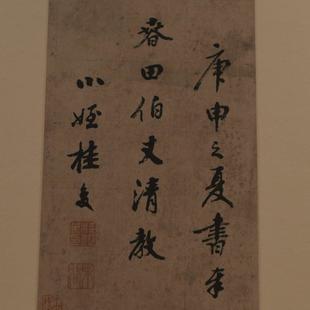 庚申之夏書奉
春田伯丈清教
小姪桂友